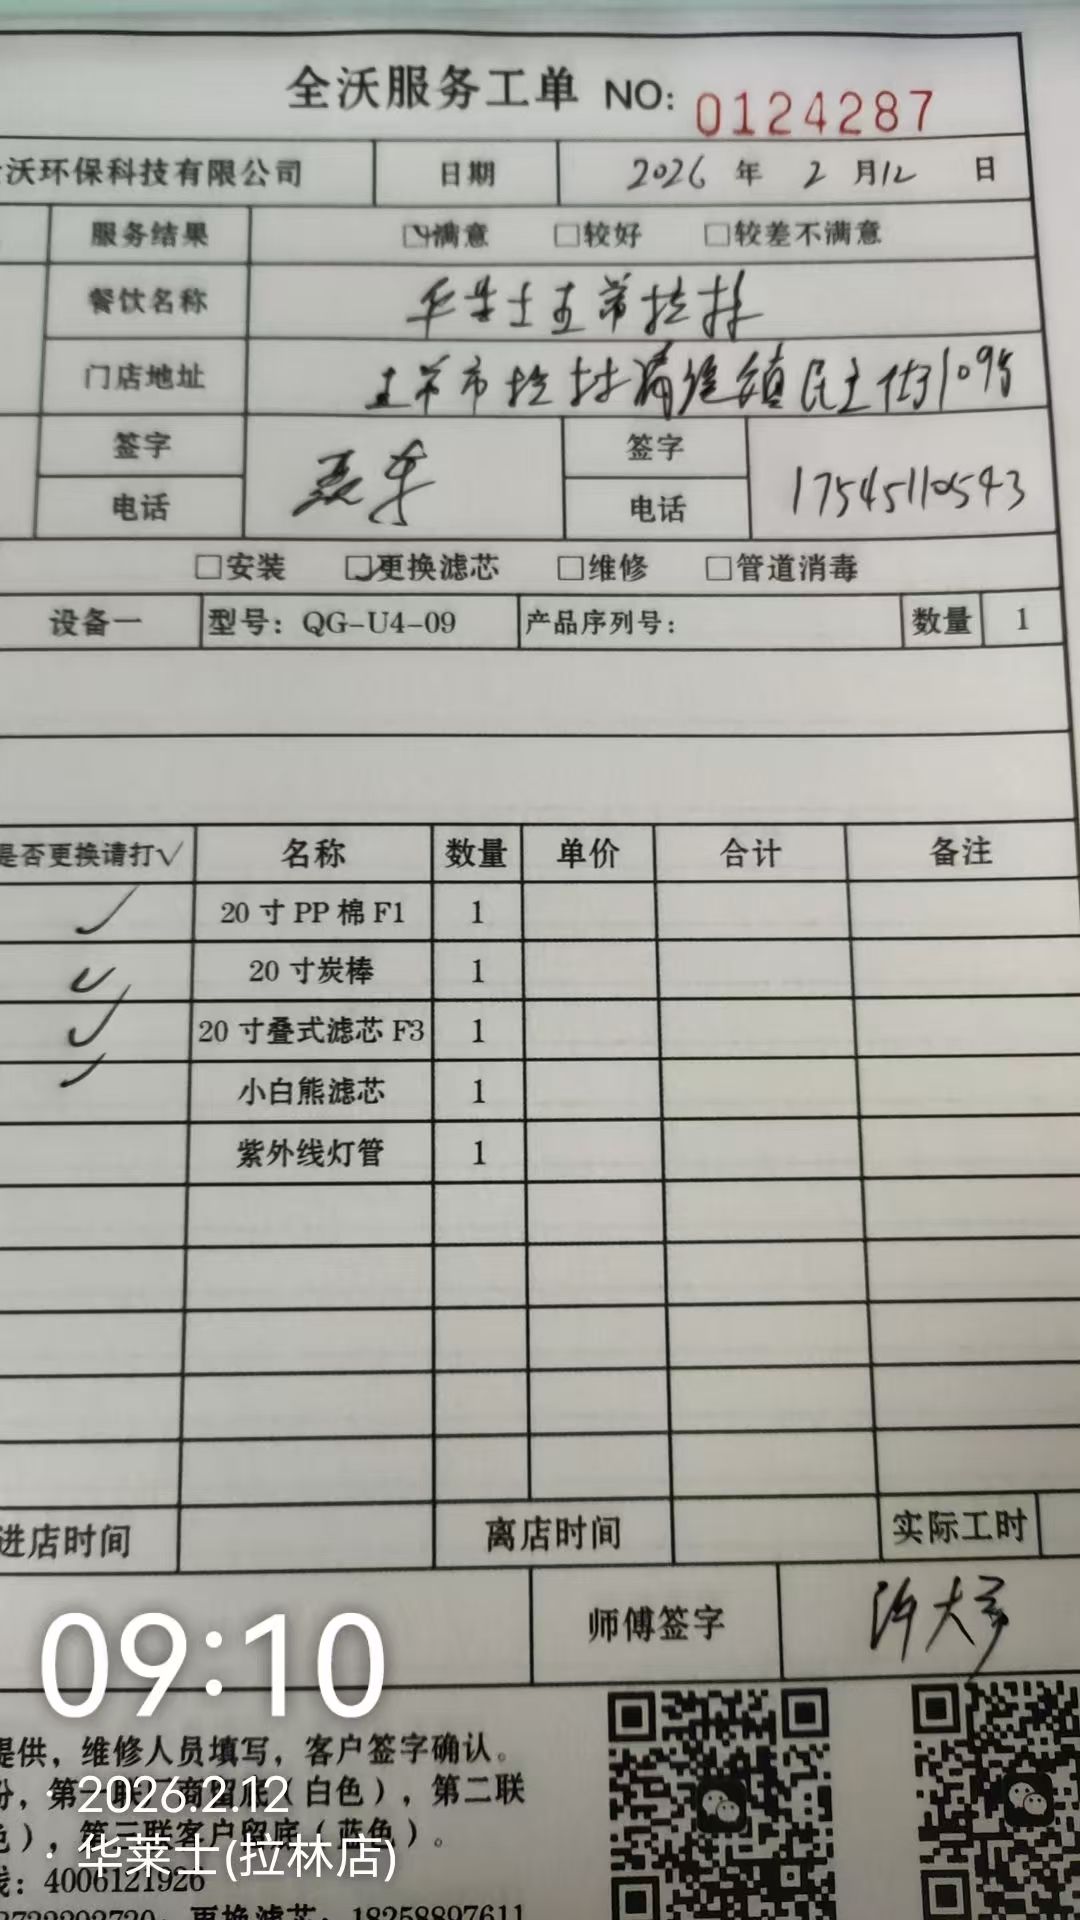 全沃服务工单 NO: 0124287
沃环保科技有限公司 日期 2026 年 2 月 12 日
服务结果 满意 □较好 □较差不满意
餐饮名称 华莱士五常拉林
门店地址 五常市拉林满族镇民主街109号
签字 签字
电话 电话 17545110543
□安装 更换滤芯 □维修 □管道消毒
设备一 型号: QG-U4-09 产品序列号: 数量 1
是否更换请打√ 名称 数量 单价 合计 备注
✓ 20 寸 PP 棉 F1 1
✓ 20 寸炭棒 1
✓ 20 寸叠式滤芯 F3 1
✓ 小白熊滤芯 1
紫外线灯管 1
进店时间 离店时间 实际工时
师傅签字
09:10
提供，维修人员填写，客户签字确认。
份，第一联厂商留底（白色），第二联
2026.2.12
色），第三联客户留底（蓝色）。
华莱士(拉林店)
线: 4006121926
更换滤芯: 18258897611